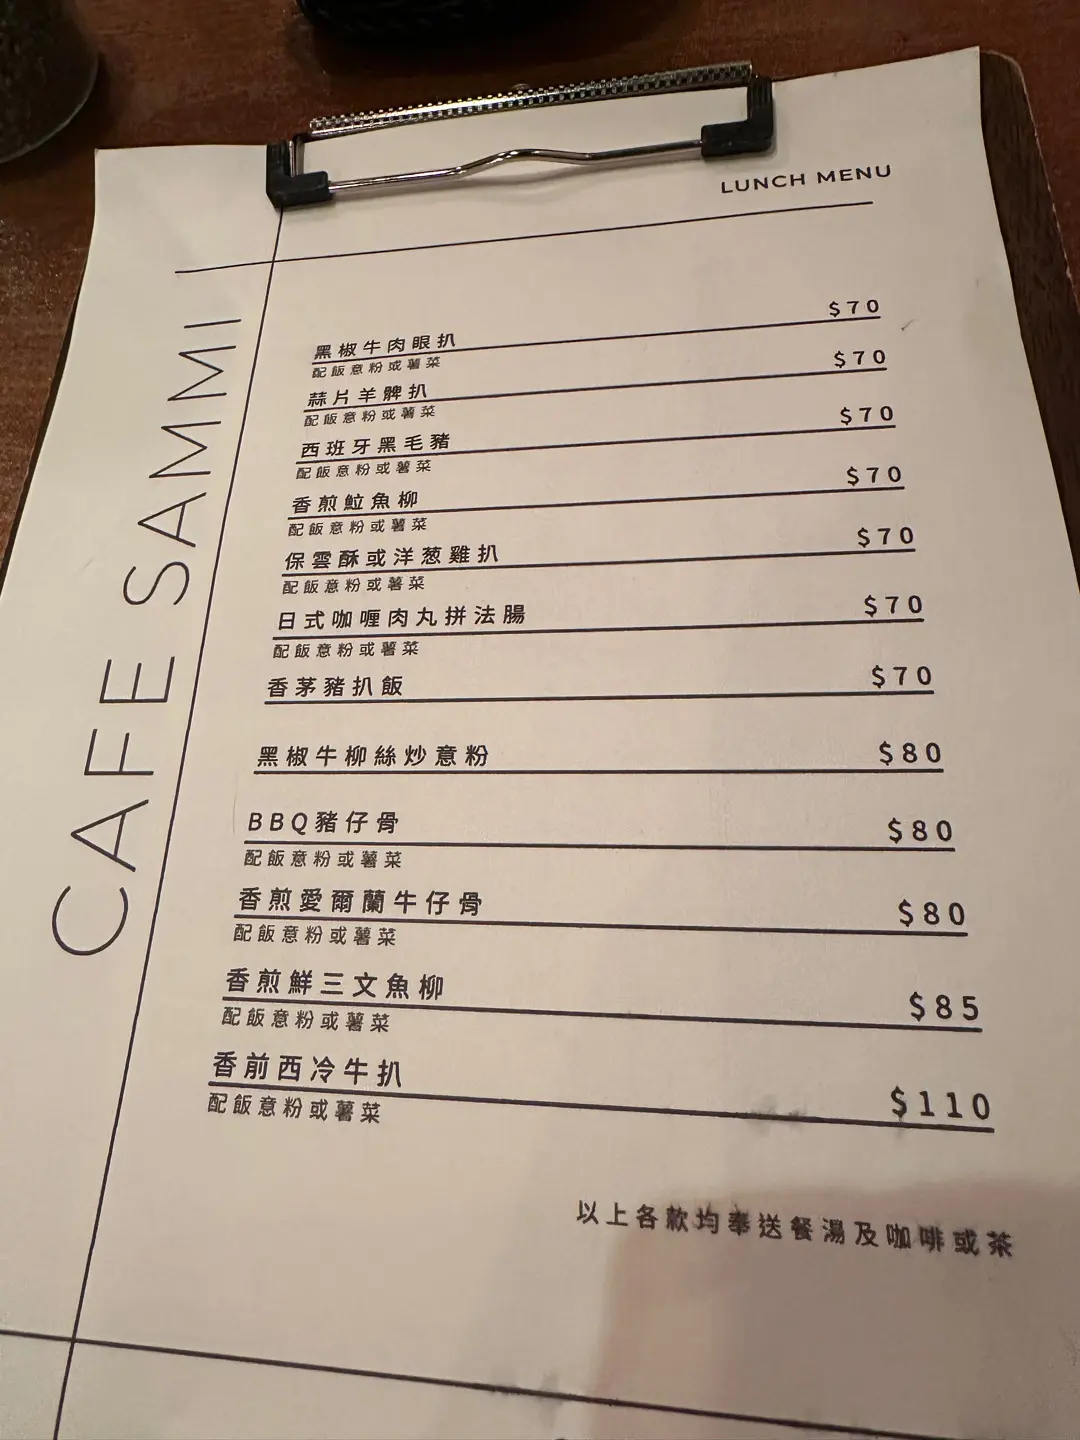 LUNCH MENU
CAFE SAMMI
黑椒牛肉眼扒 $70
配飯意粉或薯菜
蒜片羊髀扒 $70
配飯意粉或薯菜
西班牙黑毛豬 $70
配飯意粉或薯菜
香煎魚柳 $70
配飯意粉或薯菜
保雲酥或洋葱雞扒 $70
配飯意粉或薯菜
日式咖喱肉丸拼法腸 $70
配飯意粉或薯菜
香茅豬扒飯 $70
黑椒牛柳絲炒意粉 $80
BBQ豬仔骨 $80
配飯意粉或薯菜
香煎愛爾蘭牛仔骨 $80
配飯意粉或薯菜
香煎鮮三文魚柳 $85
配飯意粉或薯菜
香前西冷牛扒 $110
配飯意粉或薯菜
以上各款均奉送餐湯及咖啡或茶